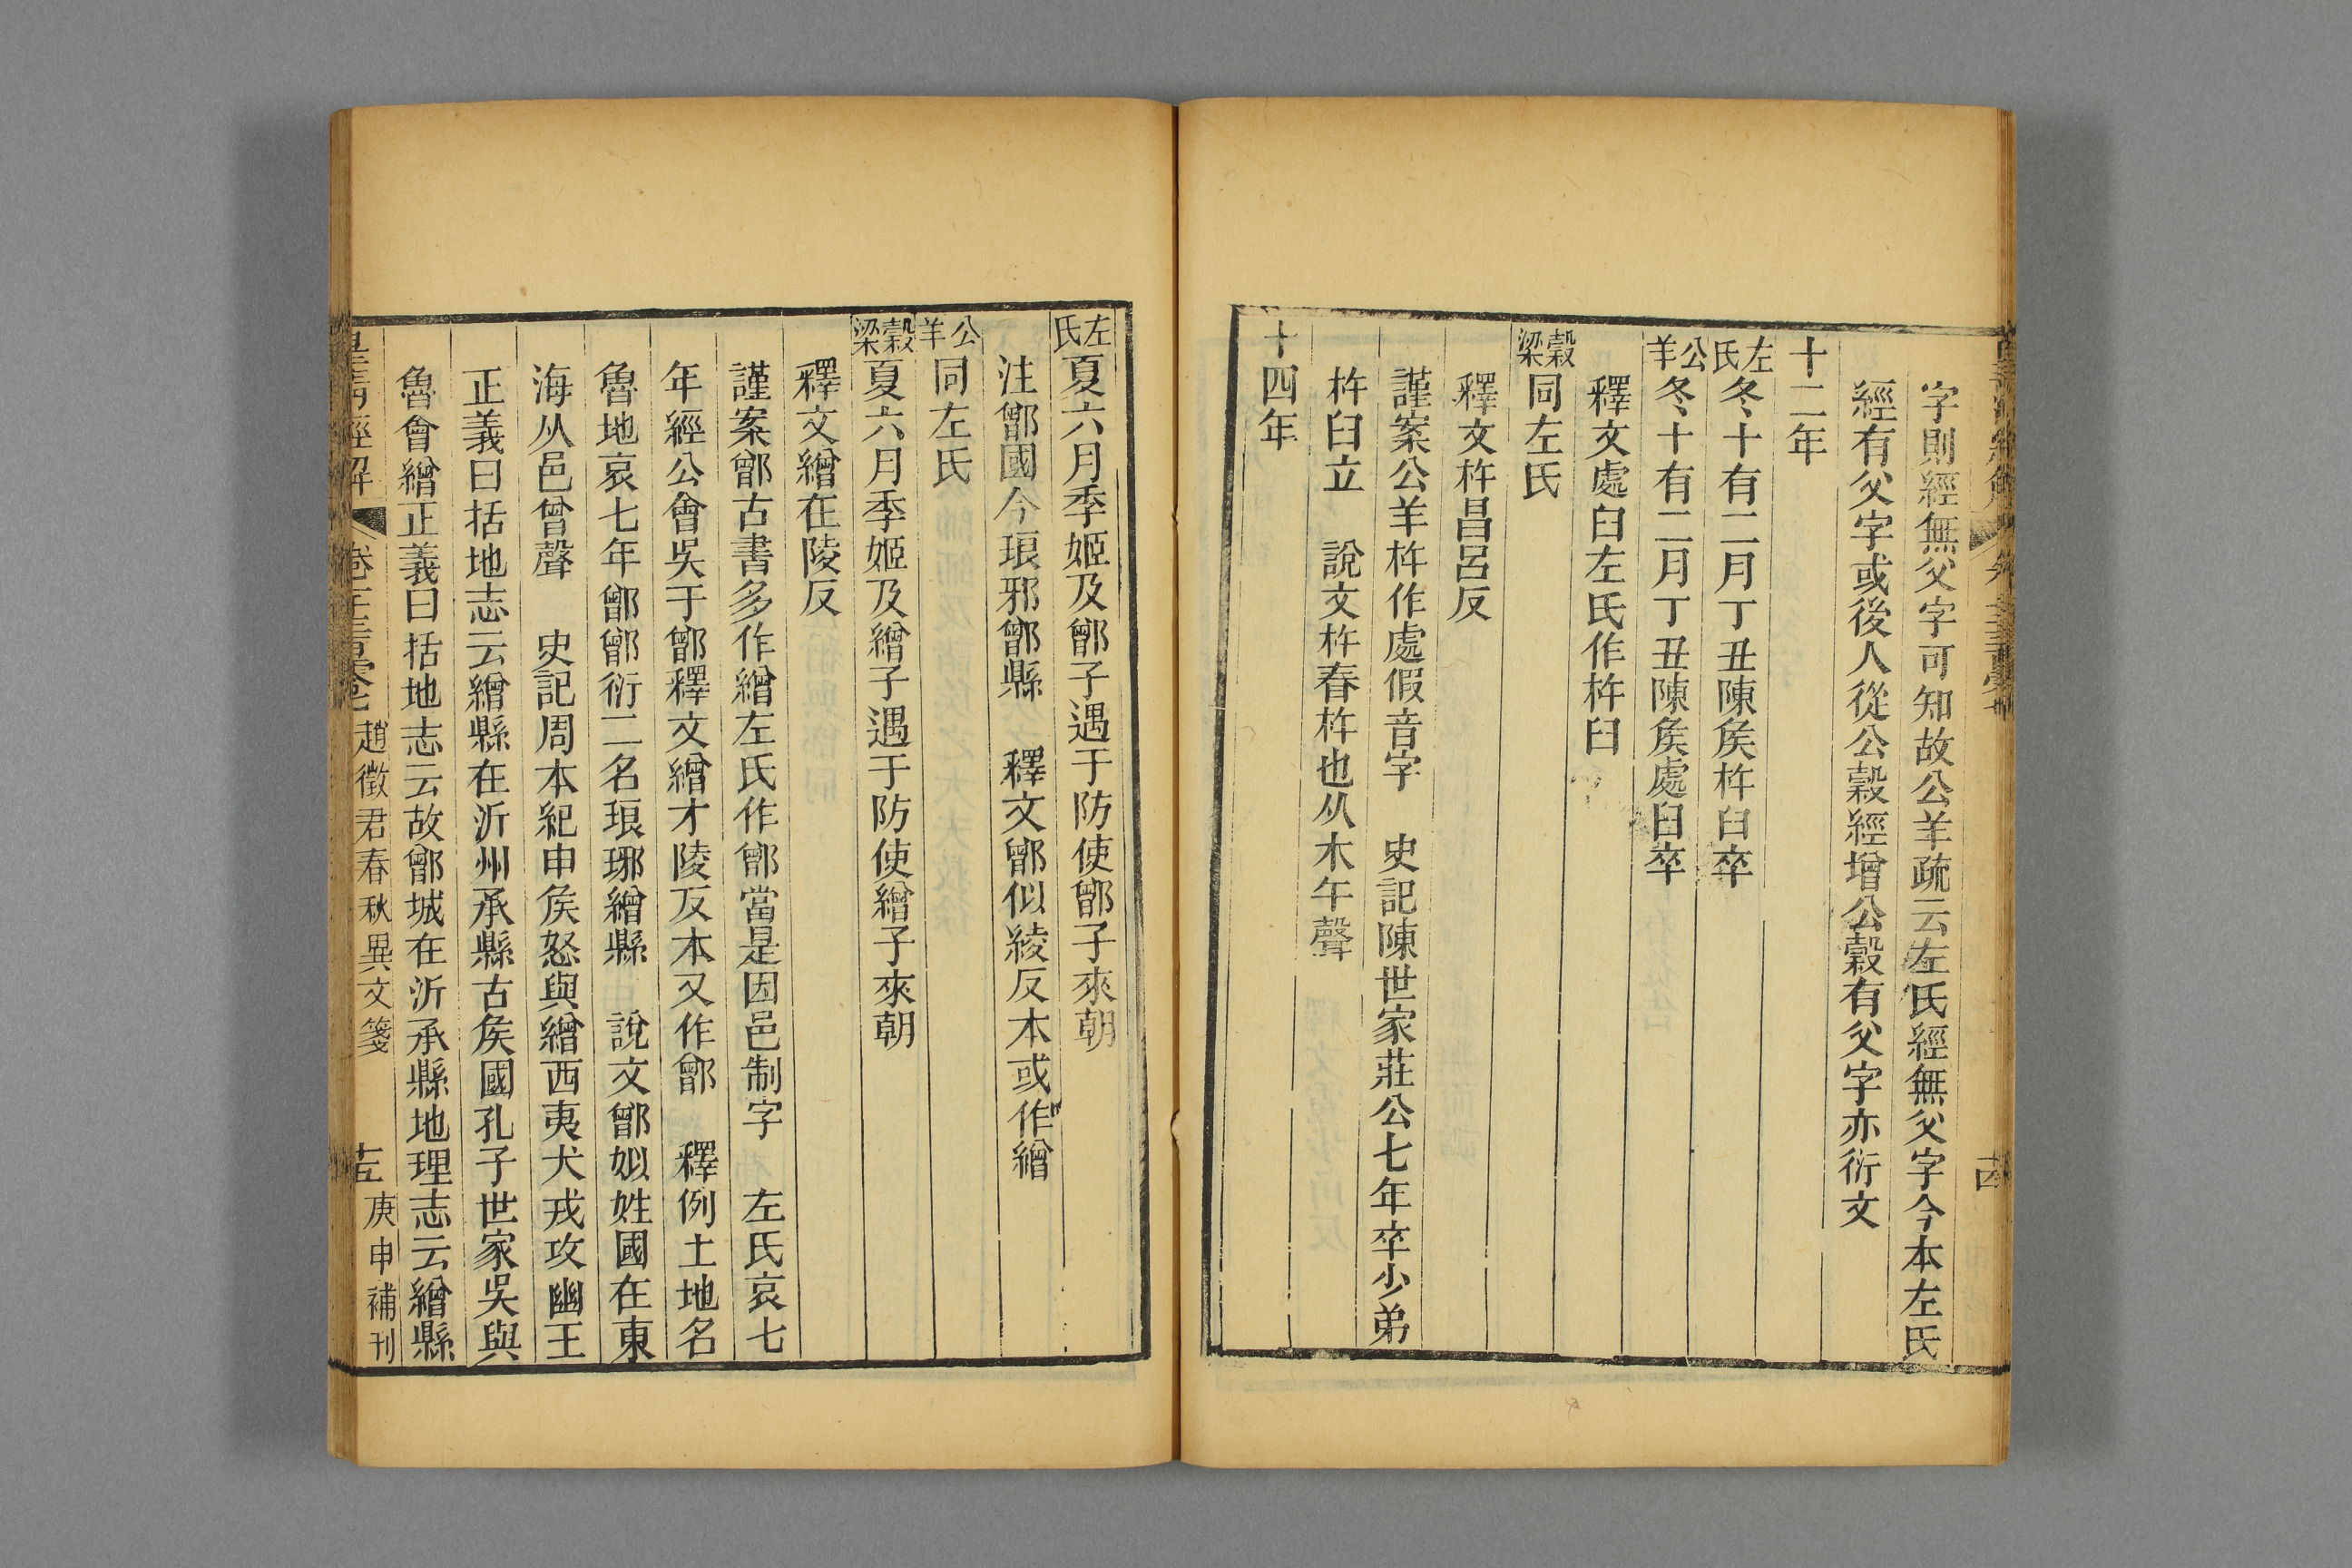 字則經無父字可知故公羊疏云左氏經無父字今本左氏
經有父字或後人從公穀經增公穀有父字亦衍文
十二年
左氏冬十有二月丁丑陳矦杵臼卒
公羊冬十有二月丁丑陳矦處臼卒
釋文處臼左氏作杵臼
穀梁同左氏
釋文杵昌呂反
謹案公羊杵作處假音字　史記陳世家莊公七年卒少弟
杵臼立　說文杵舂杵也从木午聲
十四年
左氏夏六月季姬及鄫子遇于防使鄫子來朝
注鄫國今琅邪鄫縣　釋文鄫似綾反本或作繒
公羊同左氏
穀梁夏六月季姬及繒子遇于防使繒子來朝
釋文繒在陵反
謹案鄫古書多作繒左氏作鄫當是因邑制字　左氏哀七
年經公會吳于鄫釋文繒才陵反本又作鄫　釋例土地名
魯地哀七年鄫鄫衍二名琅琊繒縣　說文鄫姒姓國在東
海从邑曾聲　史記周本紀申矦怒與繒西夷犬戎攻幽王
正義曰括地志云繒縣在沂州承縣古矦國孔子世家吳與
魯會繒正義曰括地志云故鄫城在沂承縣地理志云繒縣
皇清經解　趙徵君春秋異文箋　庚申補刊